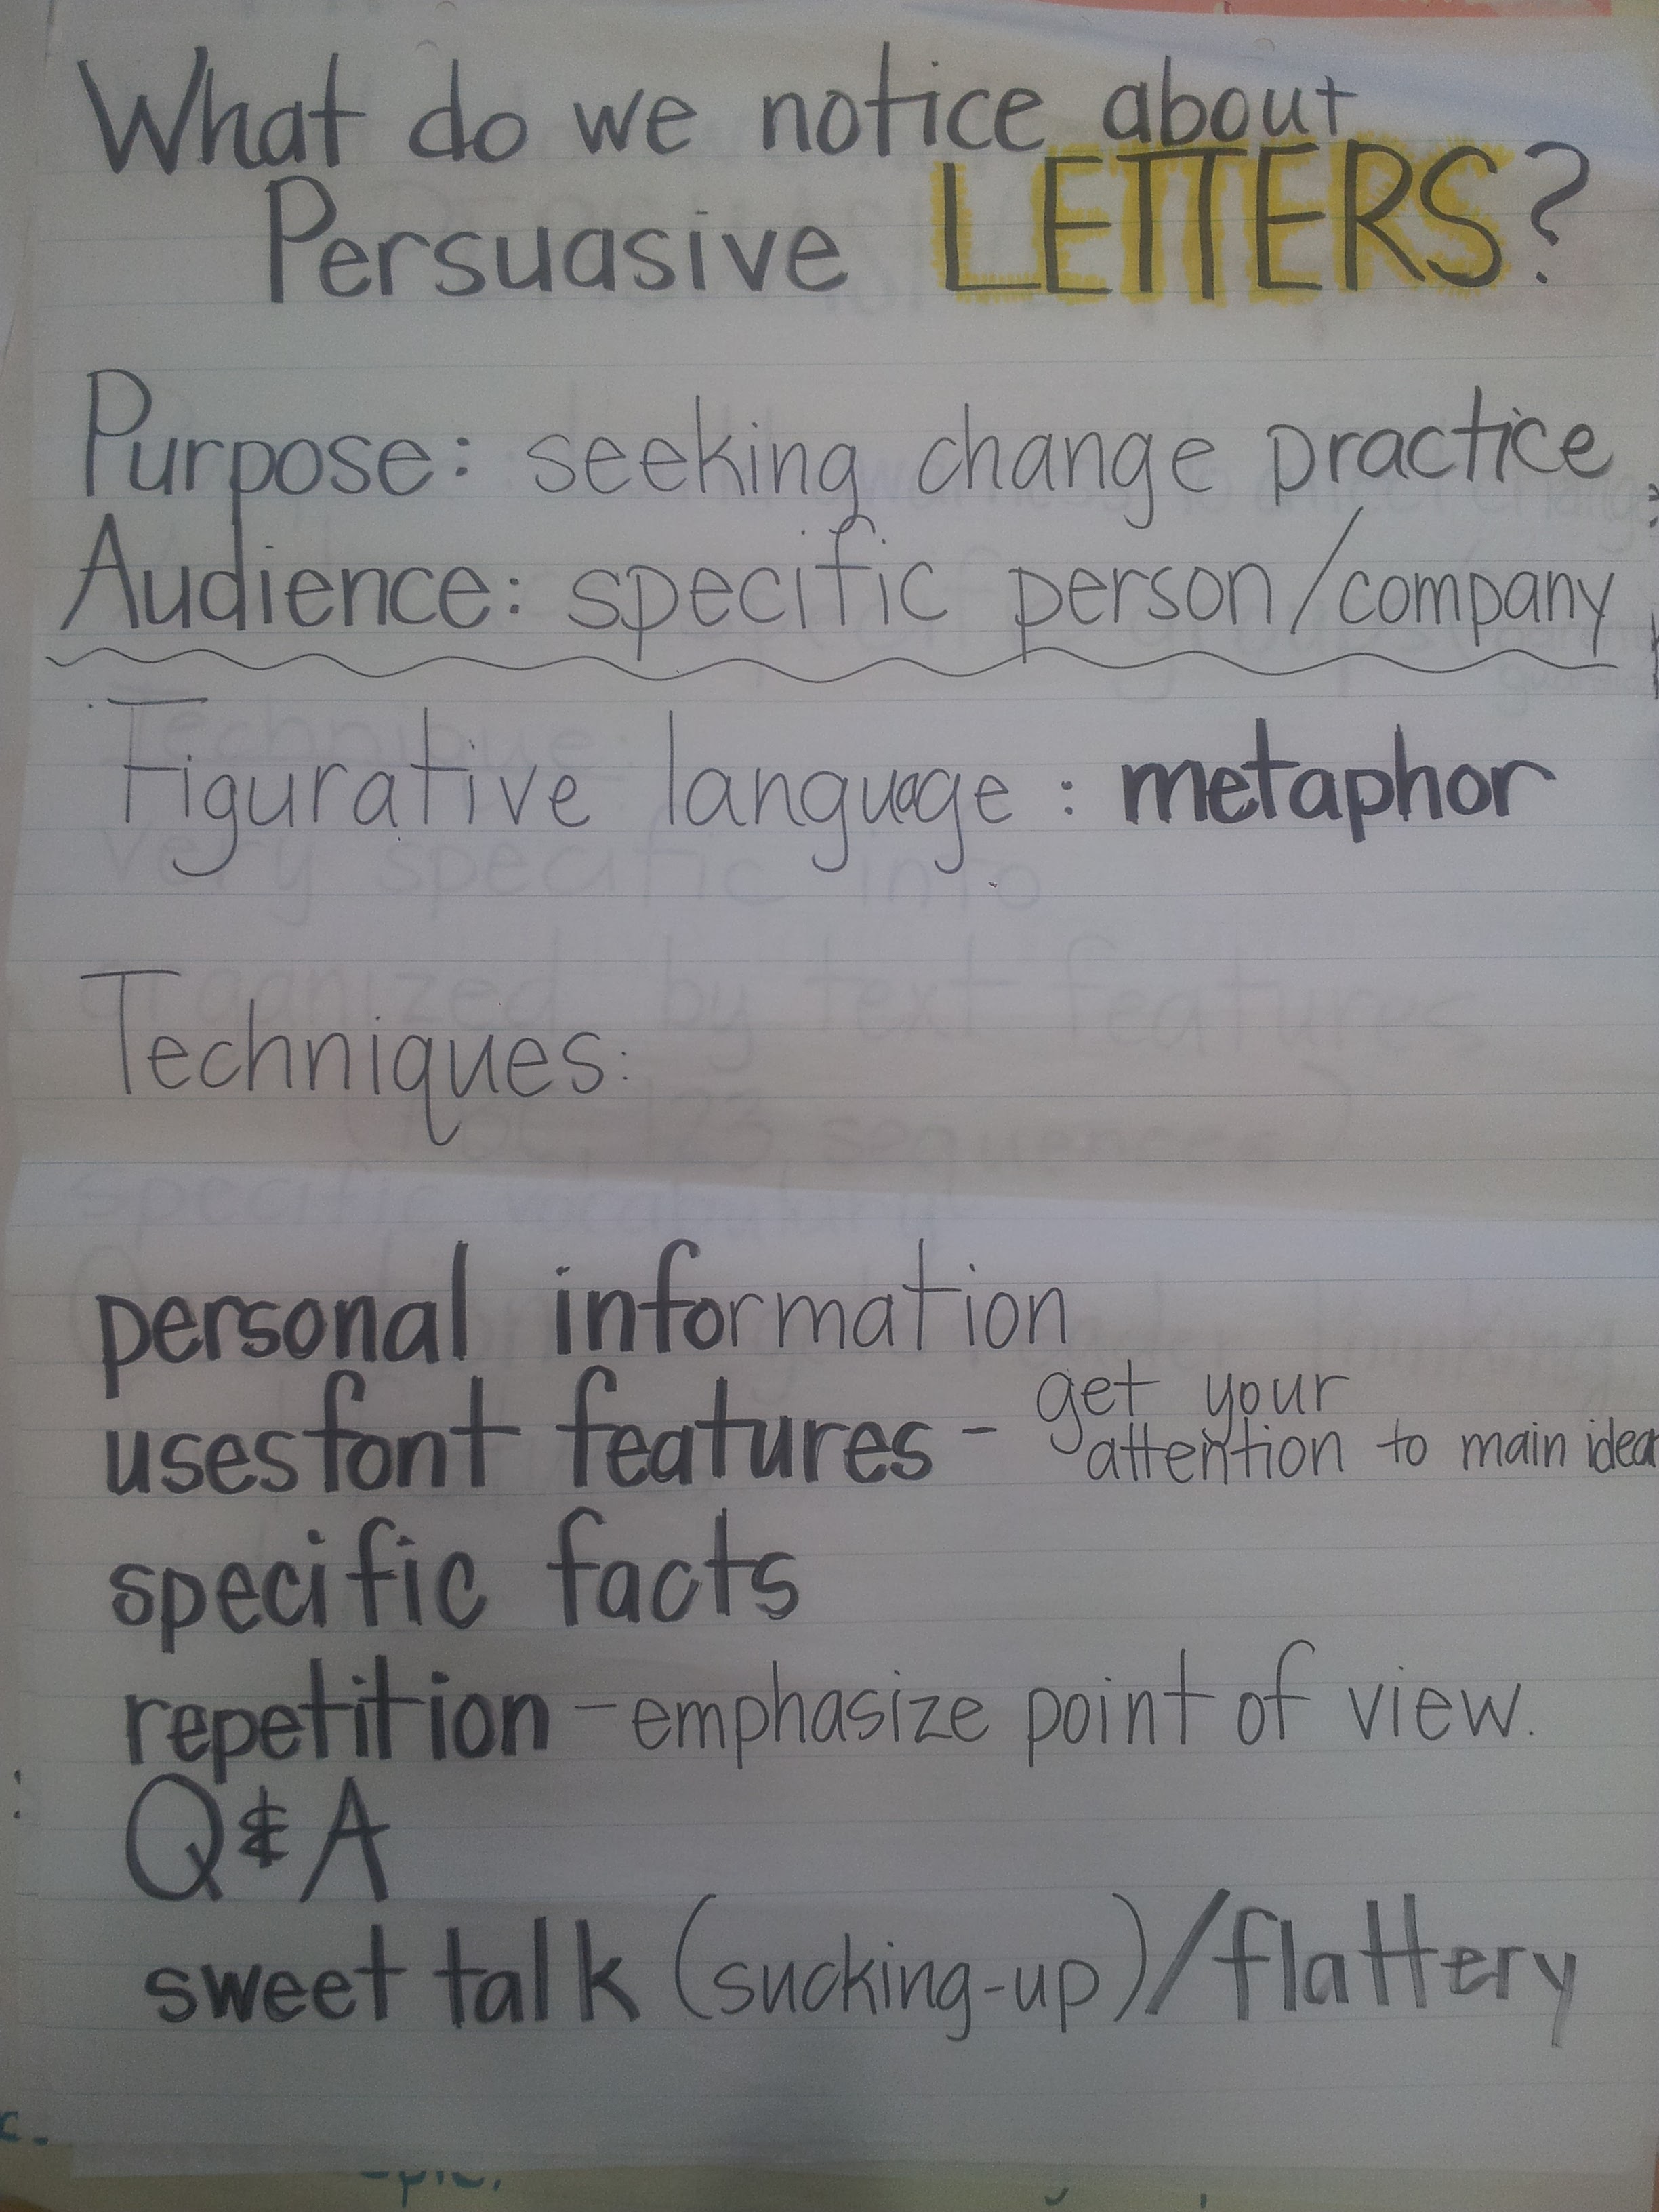 What do we notice about
Persuasive LETTERS?
Purpose: seeking change practice
Audience: specific person/company
Figurative language: metaphor
Techniques:
personal information
uses font features - get your
attention to main idea
specific facts
repetition - emphasize point of view.
Q & A
sweet talk (sucking-up)/flattery